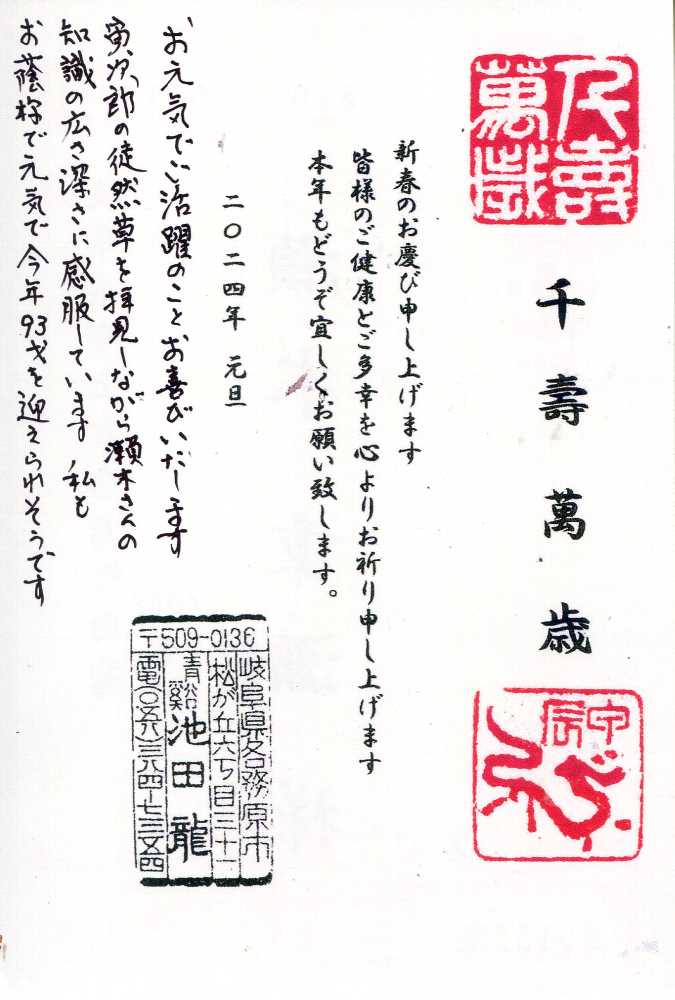 人壽
萬歲
千壽萬歳
甲辰
新春のお慶び申し上げます
皆様のご健康とご多幸を心よりお祈り申し上げます
本年もどうぞ宜しくお願い致します。
二〇二四年 元旦
お元気でご活躍のことお喜びいたします
寅次郎の徒然草を拝見しながら瀬木さんの
知識の広さ深さに感服しています 私も
お蔭様で元気で今年93才を迎えられそうです
〒509-0136
岐阜県各務原市
松が丘六丁目三十一
青谿 池田 龍
電(〇五八)三八四-七三五四